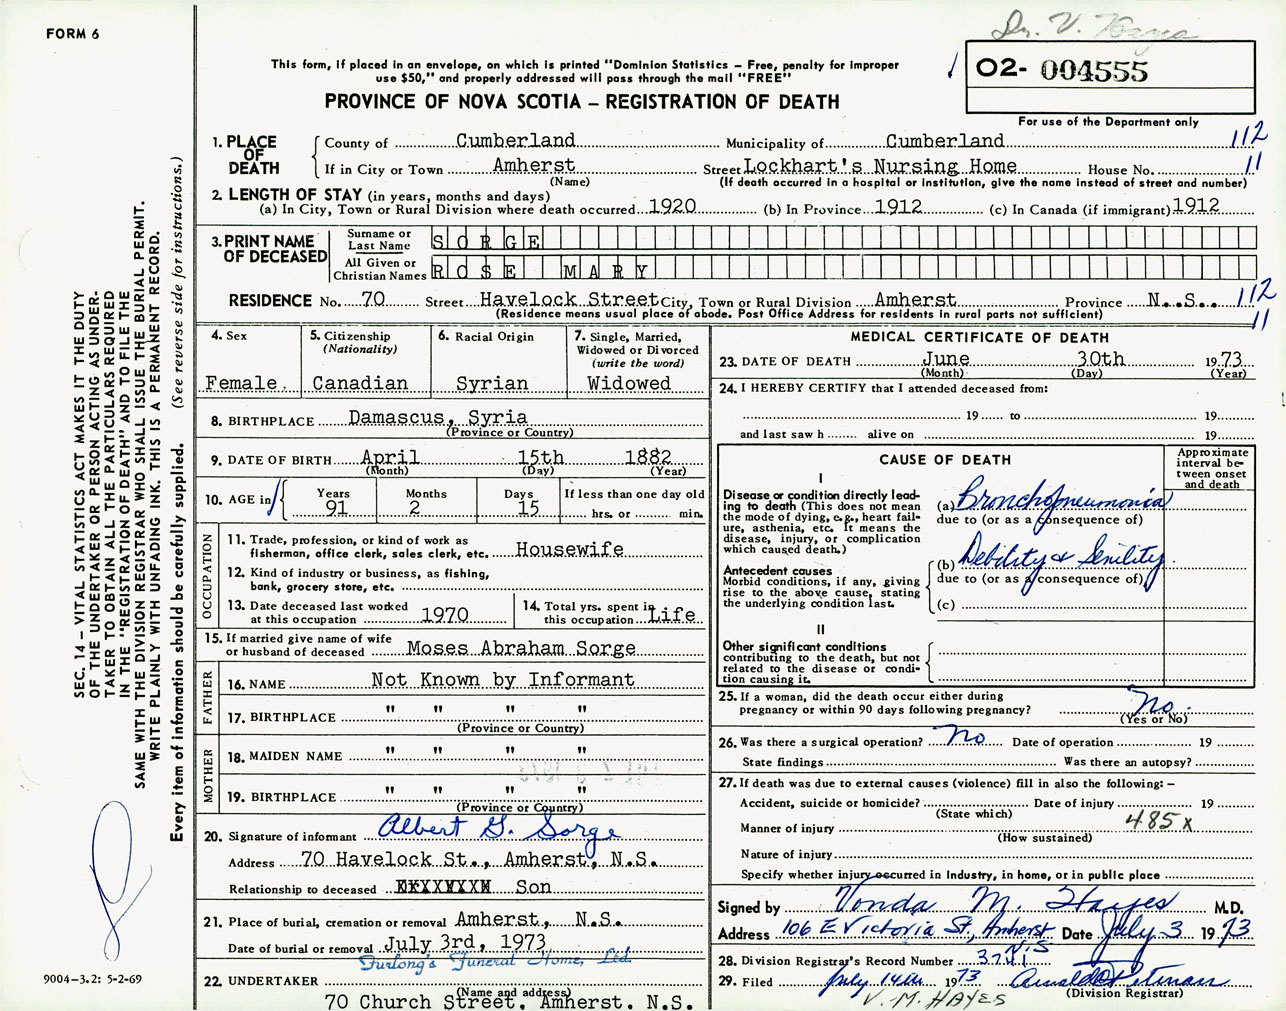 FORM 6
Dr. V. Hayes
This form, if placed in an envelope, on which is printed "Dominion Statistics – Free, penalty for improper
use $50," and properly addressed will pass through the mail "FREE"
PROVINCE OF NOVA SCOTIA – REGISTRATION OF DEATH
02- 004555
For use of the Department only
1. PLACE OF DEATH County of Cumberland Municipality of Cumberland 112
If in City or Town Amherst Street Lockhart's Nursing Home House No. 11
(Name) (If death occurred in a hospital or institution, give the name instead of street and number)
2. LENGTH OF STAY (in years, months and days)
(a) In City, Town or Rural Division where death occurred 1920 (b) In Province 1912 (c) In Canada (if immigrant) 1912
3. PRINT NAME OF DECEASED
Surname or Last Name SORGE
All Given or Christian Names ROSE MARY
RESIDENCE No. 70 Street Havelock Street City, Town or Rural Division Amherst Province N.S. 112
(Residence means usual place of abode. Post Office Address for residents in rural parts not sufficient) 11
4. Sex
Female
5. Citizenship
(Nationality)
Canadian
6. Racial Origin
Syrian
7. Single, Married,
Widowed or Divorced
(write the word)
Widowed
8. BIRTHPLACE Damascus, Syria
(Province or Country)
9. DATE OF BIRTH April 15th 1882
(Month) (Day) (Year)
10. AGE in
Years 91
Months 2
Days 15
If less than one day old
hrs. or min.
OCCUPATION
11. Trade, profession, or kind of work as
fisherman, office clerk, sales clerk, etc. Housewife
12. Kind of industry or business, as fishing,
bank, grocery store, etc.
13. Date deceased last worked
at this occupation 1970
14. Total yrs. spent in
this occupation Life
15. If married give name of wife
or husband of deceased Moses Abraham Sorge
FATHER
16. NAME Not Known by Informant
17. BIRTHPLACE " " " "
(Province or Country)
MOTHER
18. MAIDEN NAME " " " "
19. BIRTHPLACE " " " "
(Province or Country)
20. Signature of informant Albert G. Sorge
Address 70 Havelock St., Amherst, N.S.
Relationship to deceased Son
21. Place of burial, cremation or removal Amherst, N.S.
Date of burial or removal July 3rd, 1973
Furlong's Funeral Home, Ltd.
22. UNDERTAKER
(Name and address)
70 Church Street, Amherst, N.S.
MEDICAL CERTIFICATE OF DEATH
23. DATE OF DEATH June 30th 1973
(Month) (Day) (Year)
24. I HEREBY CERTIFY that I attended deceased from:
19 to 19
and last saw h alive on 19
CAUSE OF DEATH
Approximate
interval be-
tween onset
and death
I
Disease or condition directly lead-
ing to death (This does not mean
the mode of dying, e.g., heart fail-
ure, asthenia, etc. It means the
disease, injury, or complication
which caused death.)
(a) Bronchopneumonia
due to (or as a consequence of)
Antecedent causes
Morbid conditions, if any, giving
rise to the above cause, stating
the underlying condition last.
(b) Debility & Senility
due to (or as a consequence of)
(c)
II
Other significant conditions
contributing to the death, but not
related to the disease or condi-
tion causing it.
25. If a woman, did the death occur either during
pregnancy or within 90 days following pregnancy? No.
(Yes or No)
26. Was there a surgical operation? No Date of operation 19
State findings Was there an autopsy?
27. If death was due to external causes (violence) fill in also the following:–
Accident, suicide or homicide? Date of injury 19
(State which) 485x
Manner of injury
(How sustained)
Nature of injury
Specify whether injury occurred in Industry, in home, or in public place
Signed by Vonda M. Hayes M.D.
Address 106 E Victoria St., Amherst N.S Date July 3 1973
28. Division Registrar's Record Number 3741
29. Filed July 14th 1973
(Division Registrar)
V. M. HAYES
SEC. 14 – VITAL STATISTICS ACT MAKES IT THE DUTY
OF THE UNDERTAKER OR PERSON ACTING AS UNDER-
TAKER TO OBTAIN ALL THE PARTICULARS REQUIRED
IN THE "REGISTRATION OF DEATH" AND TO FILE THE
SAME WITH THE DIVISION REGISTRAR WHO SHALL ISSUE THE BURIAL PERMIT.
WRITE PLAINLY WITH UNFADING INK. THIS IS A PERMANENT RECORD.
Every item of information should be carefully supplied. (See reverse side for instructions.)
9004–3.2: 5-2-69